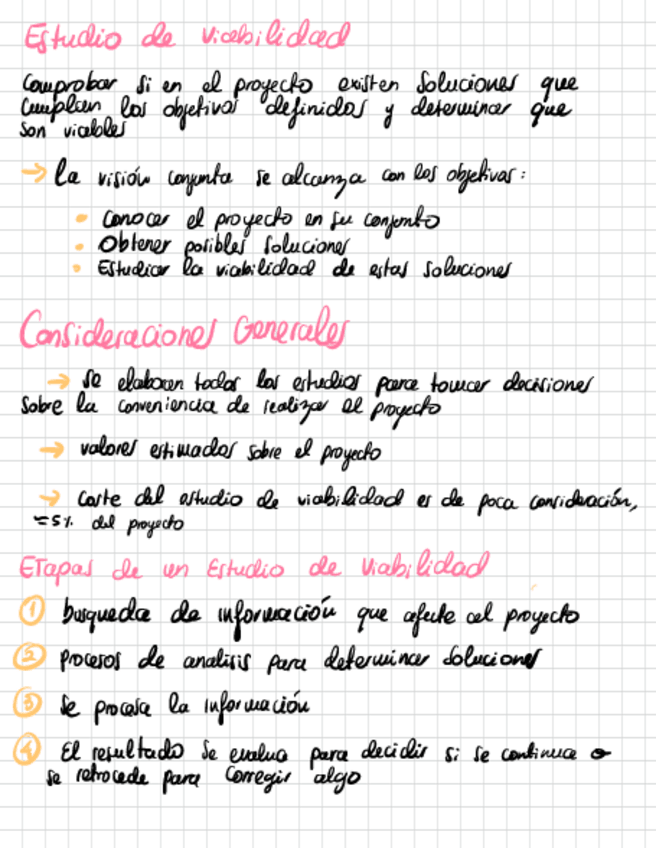 Estudio de viabilidad
Comprobar si en el proyecto existen soluciones que
cumplan los objetivos definidos y determinar que
son viables
→ la visión conjunta se alcanza con los objetivos:
• conocer el proyecto en su conjunto
• Obtener posibles soluciones
• Estudiar la viabilidad de estas soluciones
Consideraciones Generales
→ se elaboran todos los estudios para tomar decisiones
sobre la conveniencia de realizar el proyecto
→ valores estimados sobre el proyecto
→ Coste del estudio de viabilidad es de poca consideración,
≈5% del proyecto
Etapas de un Estudio de viabilidad
① busqueda de información que afecte al proyecto
② procesos de analisis para determinar soluciones
③ se procesa la información
④ El resultado se evalua para decidir si se continua o
se retrocede para corregir algo